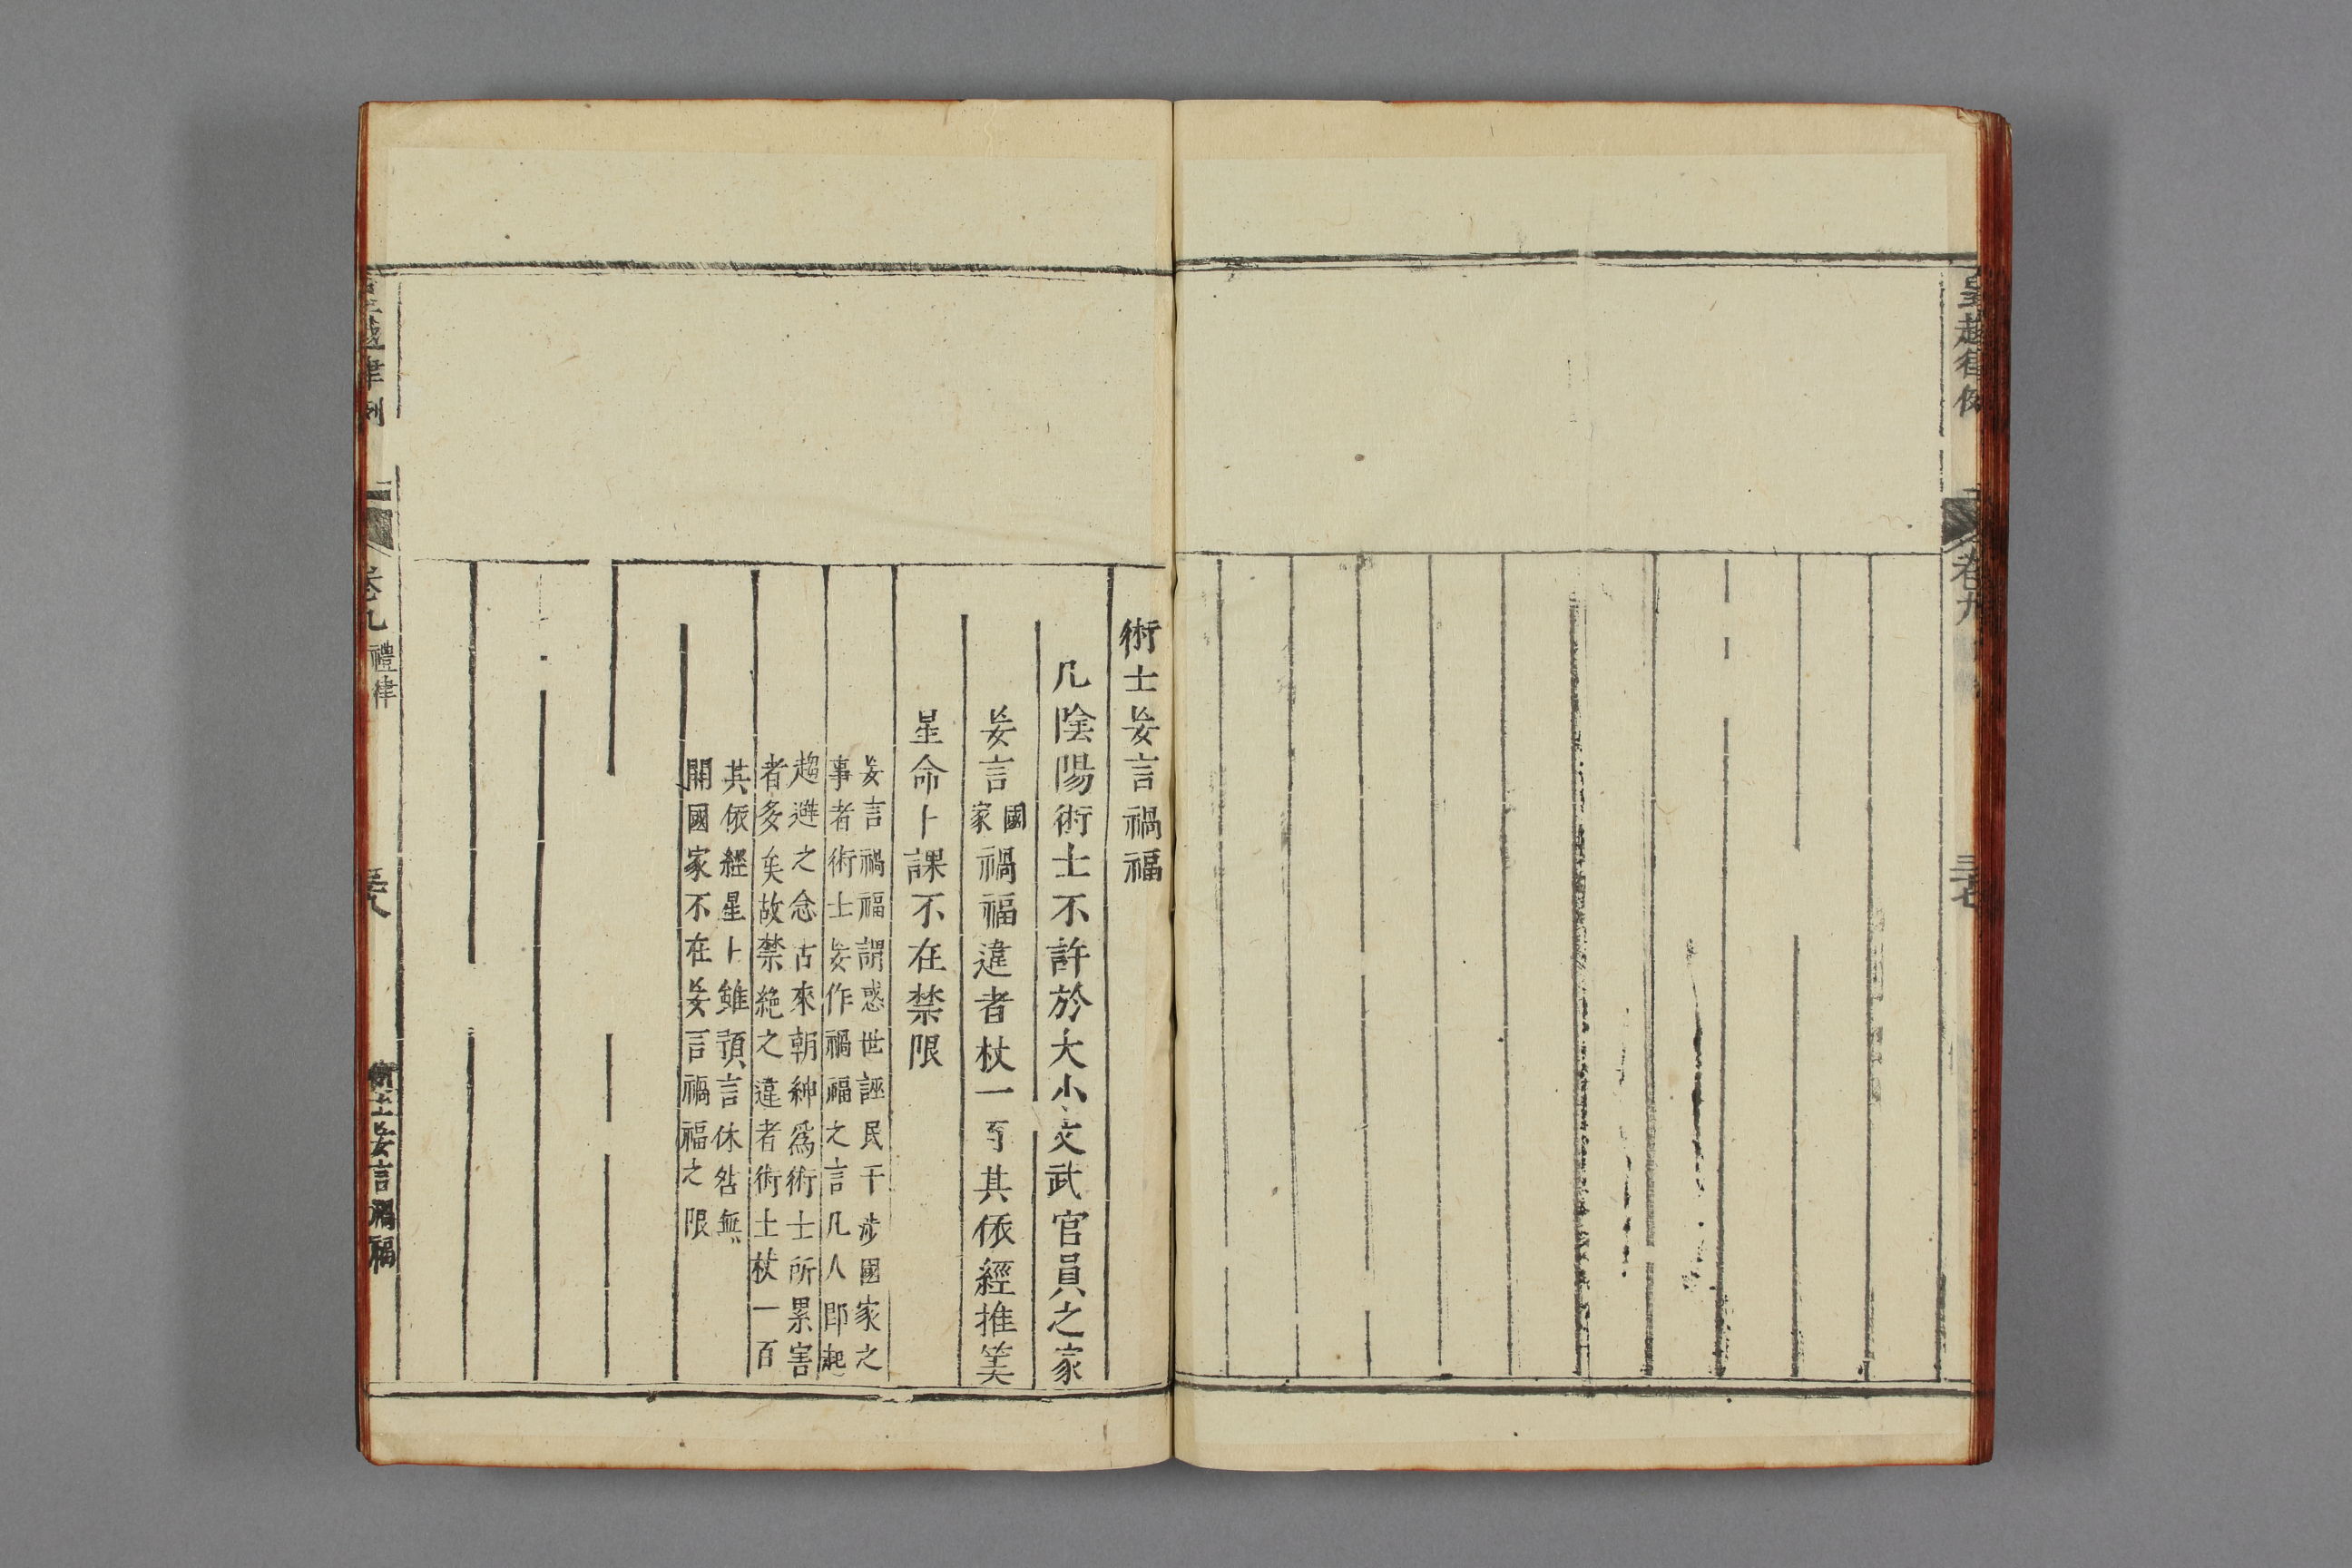 皇越律例
卷九
三十七
術士妄言禍福
凡陰陽術士不許於大小文武官員之家
妄言國家禍福違者杖一百其依經推筭
星命卜課不在禁限
妄言禍福謂惑世誣民干涉國家之
事者術士妄作禍福之言凡人即起
趨避之念古來朝紳爲術士所累害
者多矣故禁絶之違者術士杖一百
其依經星卜雖預言休咎無
關國家不在妄言禍福之限
皇越律例
卷九
禮律
三十八
術士妄言禍福